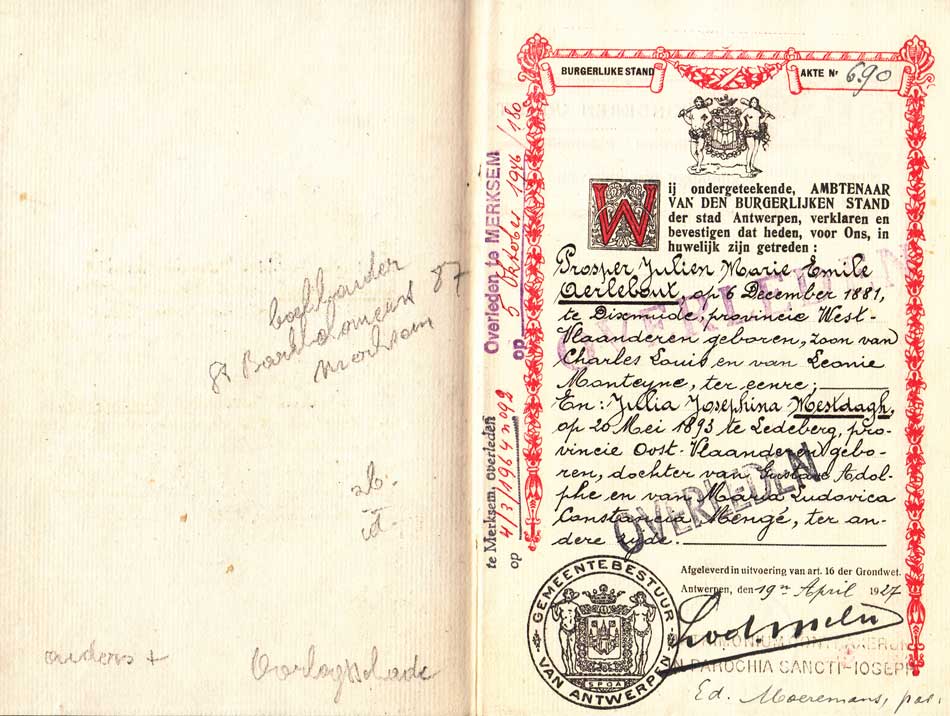 boekhouder
87
St Bartholomeus
Merksem
ouders +
Oorlogschade
Overleden te MERKSEM
op 5 Oktober 1946 / 180
te Merksem, overleden
op 4/3/1964 no 92
BURGERLIJKE STAND
AKTE Nr 690
Wij ondergeteekende, AMBTENAAR
VAN DEN BURGERLIJKEN STAND
der stad Antwerpen, verklaren en
bevestigen dat heden, voor Ons, in
huwelijk zijn getreden :
Prosper Julien Marie Emile
Aerlebout, op 6 December 1881,
te Dixmude, provincie West-
Vlaanderen geboren, zoon van
Charles Louis en van Leonie
Monteyne, ter eenre;
En : Julia Josephina Mestdagh,
op 20 Mei 1893 te Ledeberg, pro-
vincie Oost-Vlaanderen gebo-
ren, dochter van Gustave Adol-
phe en van Maria Ludovica
Constancia Mengé, ter an-
dere zyde.
OVERLEDEN
OVERLEDEN
Afgeleverd in uitvoering van art. 16 der Grondwet.
Antwerpen, den 19n April 1927
GEMEENTEBESTUUR
VAN ANTWERPEN
SPQA
MATRIMONIUM CONTRAXERUNT
IN PAROCHIA SANCTI-IOSEPH
Ed. Moeremans, pas.